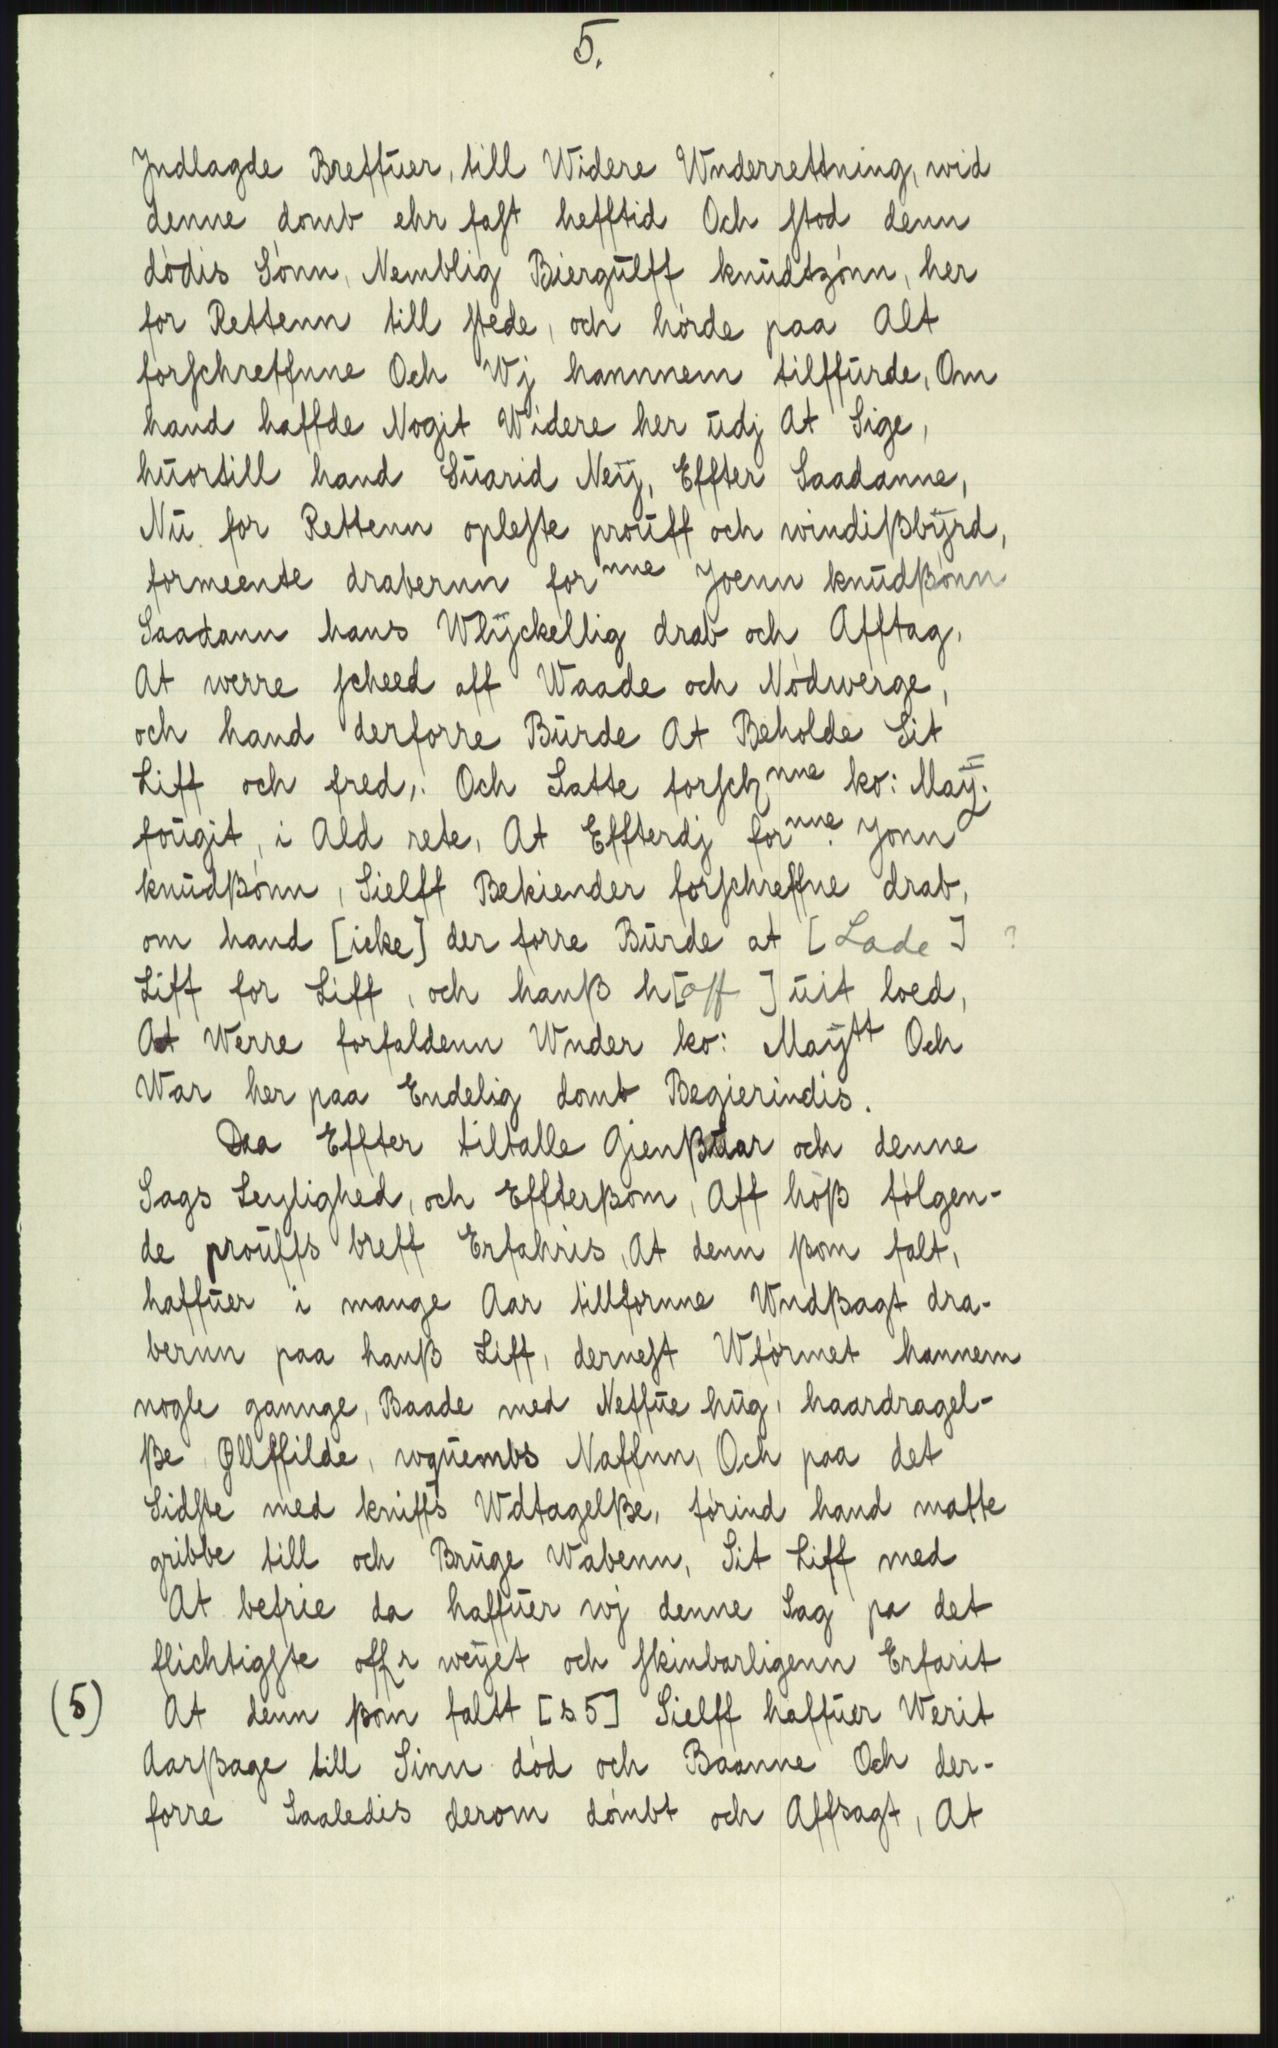 5.
Jndlagde Breffuer, till Widere Wnderrettning, wid
denne domb ehr fast hefftid Och stod denn
dódis Sónn, Nemblig Biergulff knudtzónn, her
for Rettenn till stede, och hórde paa Alt
forschreffnne Och Wj hannnem tilffurde, Om
hand haffde Nogit Widere her udj At Sige,
huortill hand Suarid Neÿ, Effter Saadanne,
Nu for Rettenn opleste prouff och windißbÿrd,
formeente drabernn for nne Joenn knudßónn
Saadann hans Wlÿckellig drab och Afftag,
At werre scheed aff Waade och Nódwerge,
och hand derforre Burde At Beholde Sit
Liff och fred,. Och Satte forsch nne ko: Maÿ:
fougit, i Ald rete, At Effterdj for nne. Jonn
knudßónn, Sielff Bekiender forschreffne drab,
om hand [icke] der forre Burde at [Lade] ?
Liff for Liff, och hanß h[off ] uit loed,
At Werre forfaldenn Wnder ko: Maÿtt Och
War her paa Endelig domb Begierindis.
Daa Effter tiltalle Gienßuar och denne
Sags Leylighed, och Effterßom, Aff hóß fólgen-
de prouffs breff Erfahris, At denn ßom falt,
haffuer i mange Aar tillfornne Wndßagt dra-
bernn paa hanß Liff, dernest Wfórmet hannem
nogle gannge, Baade med Neffue hug, haardragel-
ße Øllffilde, wquembs Naffnn, Och paa det
Sidste med kniffs Wdtagelße, fórind hand matte
gribbe till och Bruge Wabenn, Sit Liff med
At befrie da haffuer wj denne Sag pa det
flichtigste offr weÿet och skinbarligenn Erfarit
(5) At denn ßom faltt [s 5] Sielff haffuer Werit
Aarßage till Sinn dód och Baanne Och der-
forre Saaledis derom dómbt och Affsagt, At